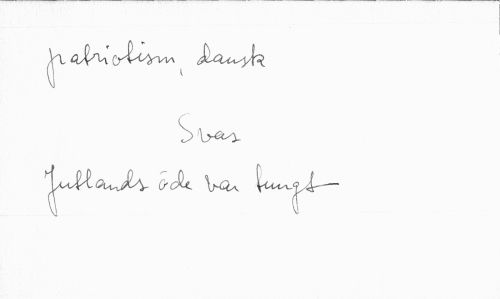 patriotism, dansk
Svas
Jutlands öde var tungt